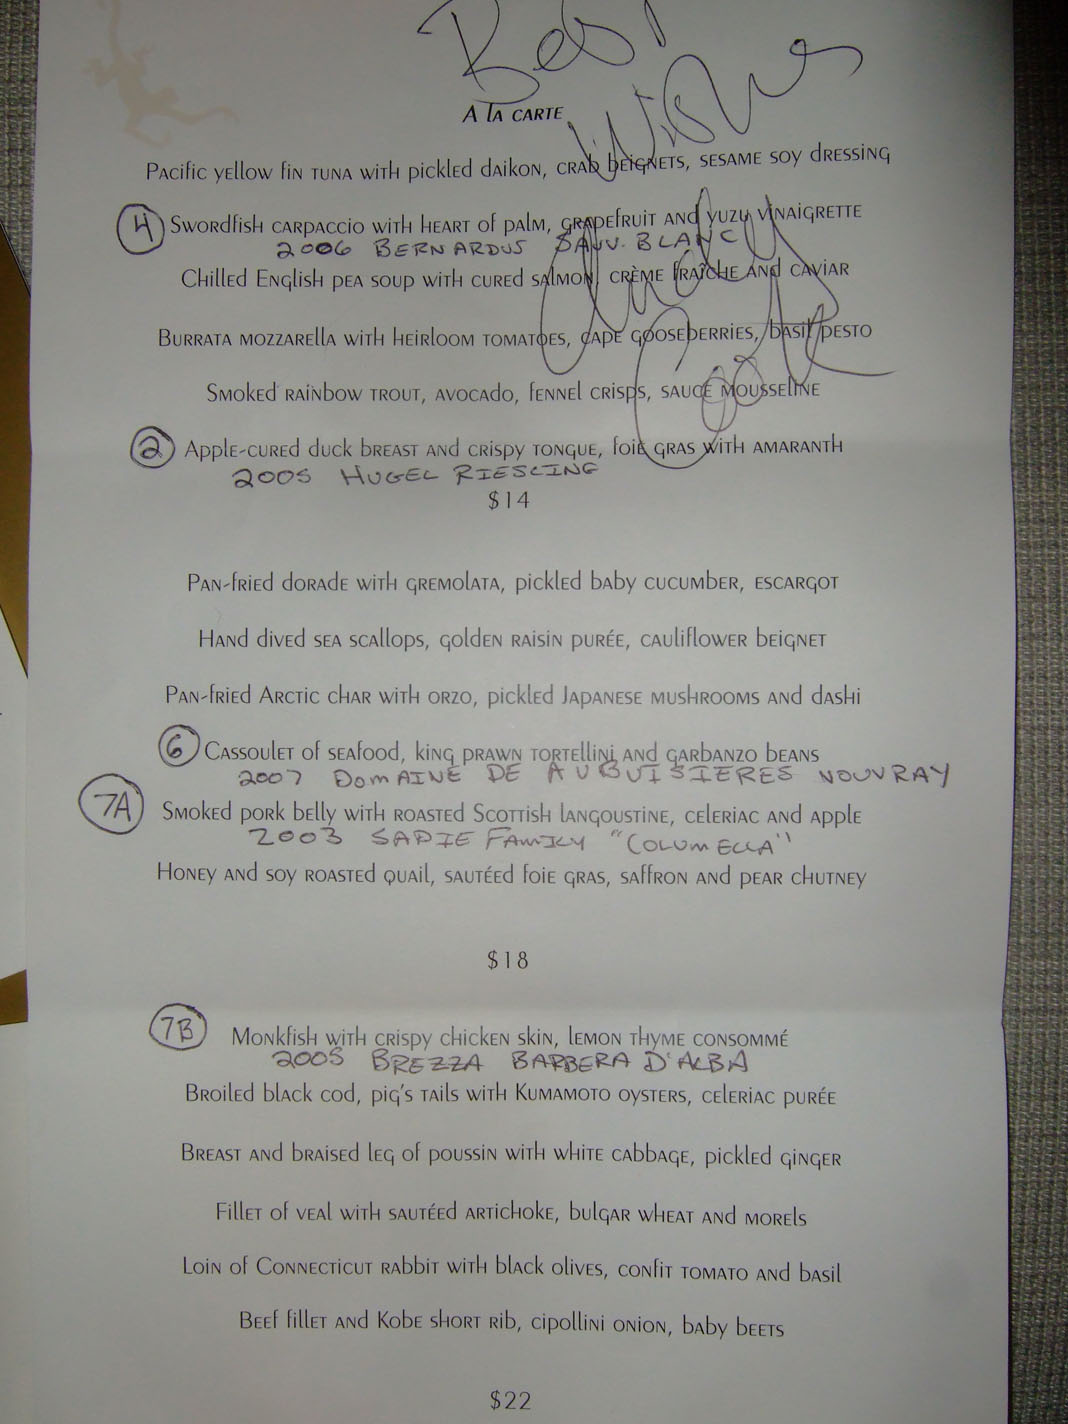 Best
Wishes
A la carte
Pacific yellow fin tuna with pickled daikon, crab beignets, sesame soy dressing
4 Swordfish carpaccio with heart of palm, grapefruit and yuzu vinaigrette
2006 BERNARDUS SAUV. BLANC
Chilled English pea soup with cured salmon, crème fraîche and caviar
Burrata mozzarella with heirloom tomatoes, cape gooseberries, basil pesto
Smoked rainbow trout, avocado, fennel crisps, sauce mousseline
2 Apple-cured duck breast and crispy tongue, foie gras with amaranth
2005 HUGEL RIESLING
$14
Pan-fried dorade with gremolata, pickled baby cucumber, escargot
Hand dived sea scallops, golden raisin purée, cauliflower beignet
Pan-fried Arctic char with orzo, pickled Japanese mushrooms and dashi
6 Cassoulet of seafood, king prawn tortellini and garbanzo beans
2007 DOMAINE DE AUBUISIERES VOUVRAY
7A Smoked pork belly with roasted Scottish langoustine, celeriac and apple
2003 SADIE FAMILY "COLUMELLA"
Honey and soy roasted quail, sautéed foie gras, saffron and pear chutney
$18
7B Monkfish with crispy chicken skin, lemon thyme consommé
2005 BREZZA BARBERA D'ALBA
Broiled black cod, pig's tails with Kumamoto oysters, celeriac purée
Breast and braised leg of poussin with white cabbage, pickled ginger
Fillet of veal with sautéed artichoke, bulgar wheat and morels
Loin of Connecticut rabbit with black olives, confit tomato and basil
Beef fillet and Kobe short rib, cipollini onion, baby beets
$22